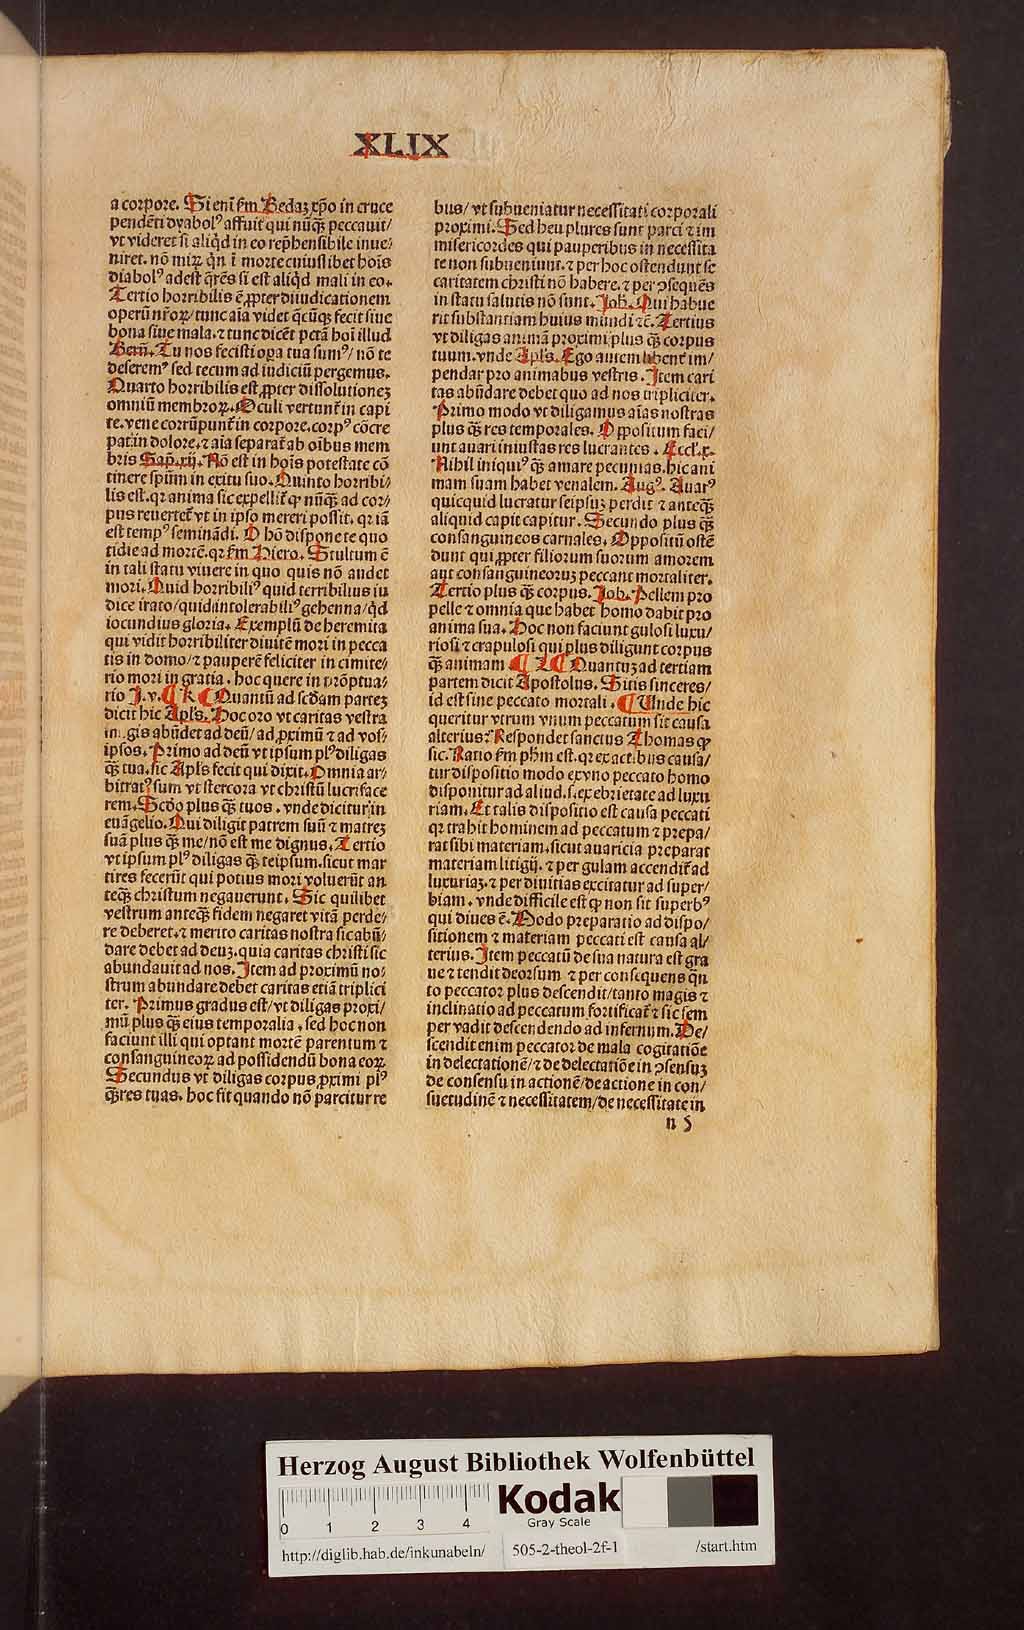 XLIX
a corpore. Si enī ẜm Bedaꝫ xp̄o in cruce
pendēti dyabolꝰ affuit qui nūqꝫ peccauit/
vt videret si aliqͥd in eo rep̄hensibile inue⸗
niret. nō miꝝ qn̄ ī morte cuiuslibet hoīs
diabolꝰ adest q̄rēs si est aliqͥd mali in eo.
Tertio horribilis ē ꝓpter diiudicationem
operū nr̄oꝝ/tunc aīa videt qͥcūqꝫ fecit siue
bona siue mala. ⁊ tunc dicēt pctā hoī illud
Bern̄. Tu nos fecisti oꝑa tua sumꝰ/ nō te
deseremꝰ sed tecum ad iudiciū pergemus.
Quarto horribilis est ꝓpter dissolutioneꝫ
omniū membroꝝ. Oculi vertunt᷑ in capi
te. vene corrūpunt᷑ in corpore. corpꝰ cōcre
pat᷑ in dolore. ⁊ aīa separat᷑ ab oībus mem
bris Sap̄. xij. Nō est in hoīs potestate cō
tinere spūm in exitu suo. Quinto horribi⸗
lis est. qꝛ anima sic expellit᷑ ꝙ nūqꝫ ad cor⸗
pus reuertet᷑ vt in ipso mereri possit. qꝛ iā
est tempꝰ semināndi. O hō dispone te quo
tidie ad mortē. qꝛ ẜm Hiero. Stultum ē
in tali statu viuere in quo quis nō audet
mori. Quid horribiliꝰ quid terribilius iu
dice irato/quid intolerabiliꝰ gehenna/qͥd
iocundius gloria. Exemplū de heremita
qui vidit horribiliter diuitē mori in pecca
tis in domo/ ⁊ pauperē feliciter in cimite⸗
rio mori in gratia. hoc quere in prōptua⸗
rio J. v. ¶ K ¶ Quantū ad scd̄am parteꝫ
dicit hic Apl̄s. Hoc oro vt caritas vestra
gis abūdet ad deū/ ad ꝓximū ⁊ ad vos⸗
ipsos. Primo ad deū vt ipsum plꝰ diligas
qꝫ tua. sic Apl̄s fecit qui dixit. Omnia ar⸗
bitratꝰ sum vt stercora vt christū lucriface
rem. Scd̄o plus qꝫ tuos. vnde dicitur in
euāgelio. Qui diligit patrem suū ⁊ matreꝫ
suā plus qꝫ me/nō est me dignus. Tertio
vt ipsum plꝰ diligas qꝫ teipsum. sicut mar
tires fecerūt qui potius mori voluerūt an
teqꝫ christum negauerunt. Sic quilibet
vestrum anteqꝫ fidem negaret vitā perde⸗
re deberet. ⁊ merito caritas nostra sic abū⸗
dare debet ad deuꝫ. quia caritas christi sic
abundauit ad nos. Item ad proximū no⸗
strum abundare debet caritas etiā triplici
ter. Primus gradus est/ vt diligas proxi⸗
mū plus qꝫ eius temporalia. sed hoc non
faciunt illi qui optant mortē parentum ⁊
consanguineoꝝ ad possidendū bona eoꝝ.
Secundus vt diligas corpus ꝓximi plꝰ
qꝫ res tuas. hoc fit quando nō parcitur re
bus/ vt subueniatur necessitati corporali
proximi. Sed heu plures sunt parci ⁊ im
misericordes qui pauperibus in necessita
te non subueniunt. ⁊ per hoc ostendunt se
caritatem christi nō habere. ⁊ per ꝯsequēs
in statu salutis nō sunt. Joh̄. Qui habue
rit substantiam huius mūndi ⁊c̄. Tertius
vt diligas animā proximi plus qꝫ corpus
tuum. vnde Apl̄s. Ego autem libent᷑ im/
pendar pro animabus vestris. Item cari
tas abūdare debet quo ad nos tripliciter.
Primo modo vt diligamus aīas nostras
plus qꝫ res temporales. Oppositum faci/
unt auari iniustas res lucrantes. Eccl̄. x.
Nihil iniquiꝰ qꝫ amare pecunias. hic ani
mam suam habet venalem. Augꝰ. Auarꝰ
quicquid lucratur seipsuꝫ perdit ⁊ anteqꝫ
aliquid capit capitur. Secundo plus qꝫ
consanguineos carnales. Oppositū ostē
dunt qui ꝓpter filiorum suorum amorem
aut consanguineoruꝫ peccant mortaliter.
Tertio plus qꝫ corpus. Job. Pellem pro
pelle ⁊ omnia que habet homo dabit pro
anima sua. Hoc non faciunt gulosi luxu/
riosi ⁊ crapulosi qui plus diligunt corpus
qꝫ animam ¶ L ¶ Quantuꝫ ad tertiam
partem dicit Apostolus. Sitis sinceres/
id est sine peccato mortali. ¶ Unde hic
queritur vtrum vnum peccatum sit causa
alterius? Respondet sanctus Thomas ꝙ
sic. Ratio ẜm ph̄m est. qꝛ ex actibus causa/
tur dispositio modo ex vno peccato homo
disponitur ad aliud. s. ex ebrietate ad luxu
riam. Et talis dispositio est causa peccati
qꝛ trahit hominem ad peccatum ⁊ prepa/
rat sibi materiam. sicut auaricia preparat
materiam litigij. ⁊ per gulam accendit᷑ ad
luxuriaꝫ. ⁊ per diuitias excitatur ad super/
biam. vnde difficile est ꝙ non sit superbꝰ
qui diues ē. Modo preparatio ad dispo/
sitionem ⁊ materiam peccati est causa al/
terius. Item peccatū de sua natura est gra
ue ⁊ tendit deorsum ⁊ per consequens qn̄
to peccator plus descendit/tanto magis ⁊
inclinatio ad peccatum fortificat᷑ ⁊ sic sem
per vadit descendendo ad infernum. De/
scendit enim peccator de mala cogitatiōe
in delectationē/ ⁊ de delectatiōe in ꝯsensuꝫ
de consensu in actionē/de actione in con/
suetudinē ⁊ necessitatem/de necessitate in
n 5
Herzog August Bibliothek Wolfenbüttel
0 1 2 3 4
Kodak
Gray Scale
http://diglib.hab.de/inkunabeln/ 505-2-theol-2f-1 /start.htm